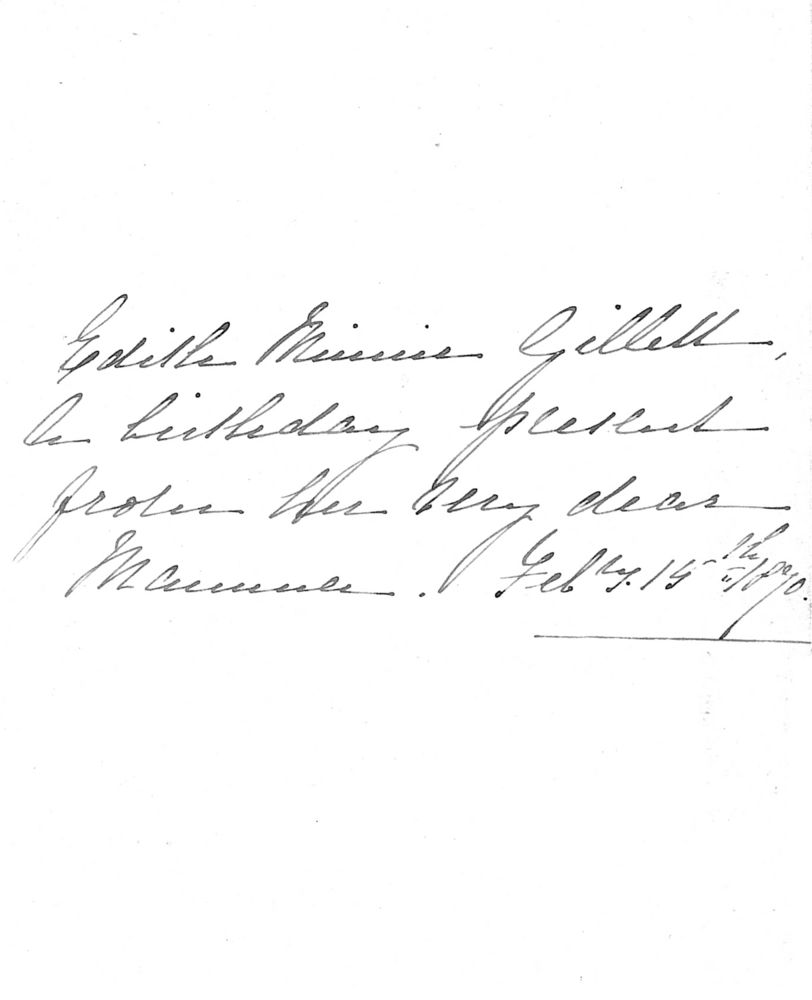 Edith Minnie Gillett,
A birthday present
from her very dear
Mamma. Feby. 15th